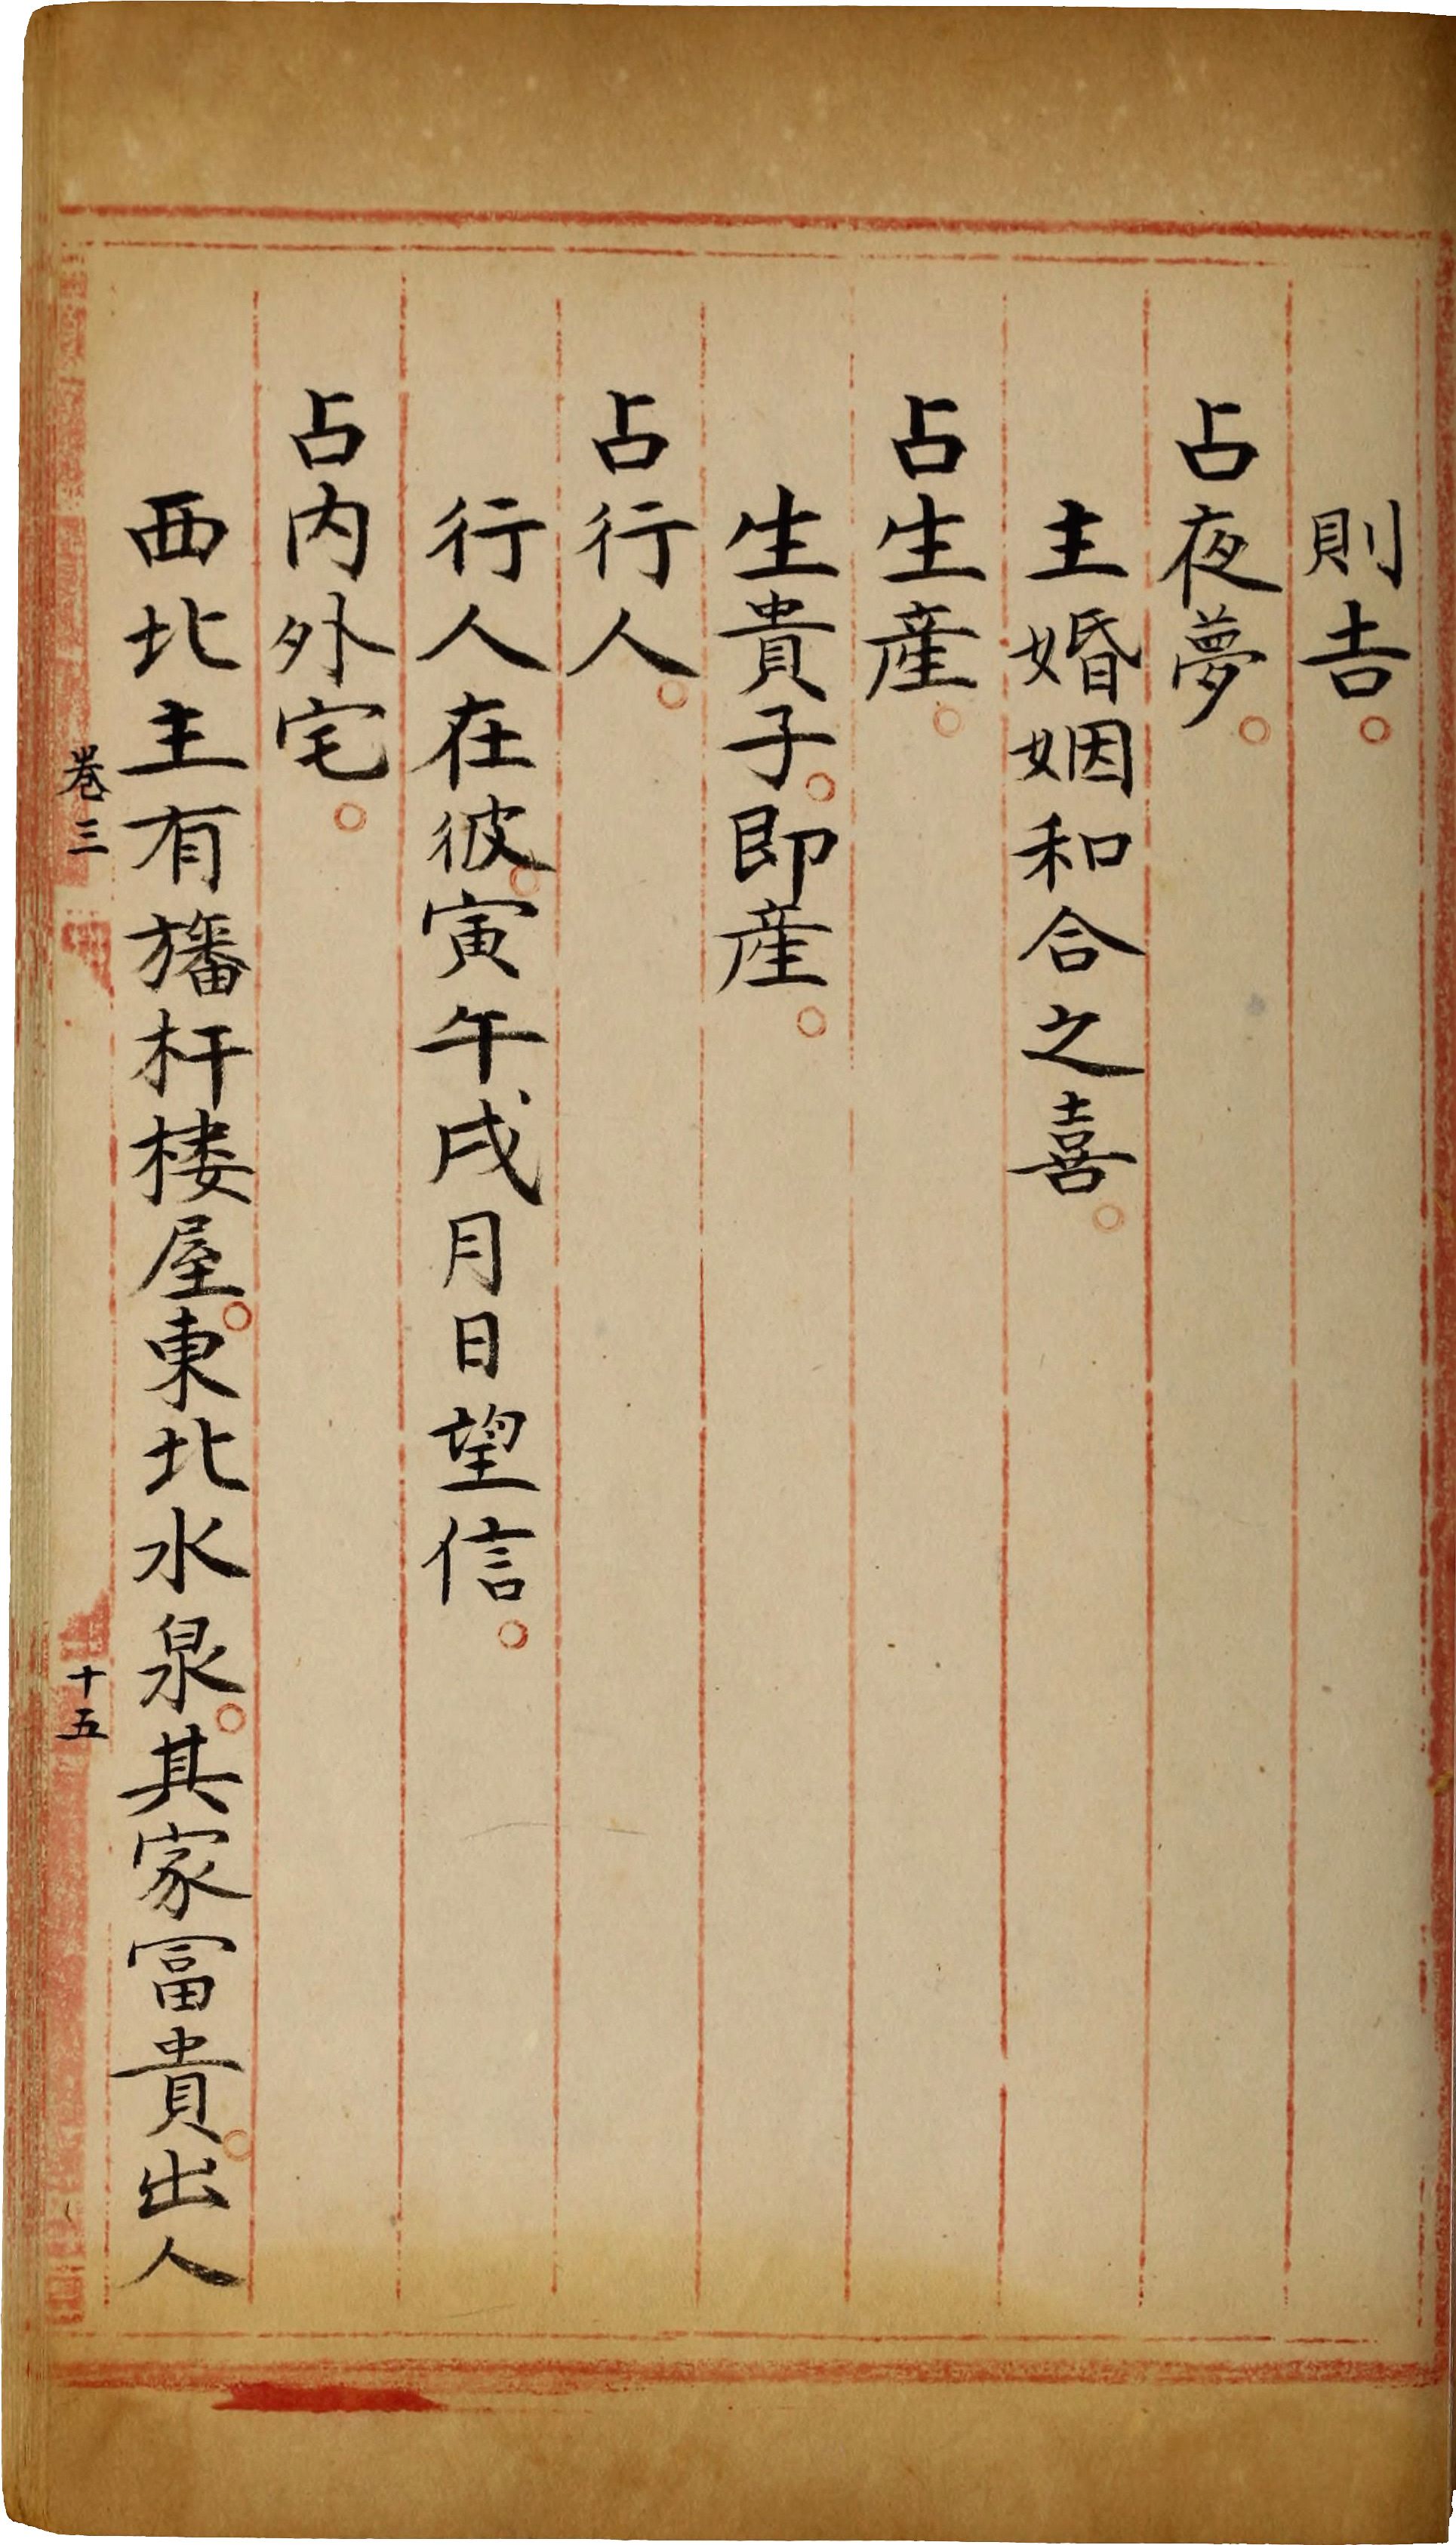 則吉。
占夜夢。
主婚姻和合之喜。
占生産。
生貴子。即産。
占行人。
行人在彼。寅午戌月日望信。
占内外宅。
西北主有旛杆楼屋。東北水泉。其家冨貴。出人
卷三
十五